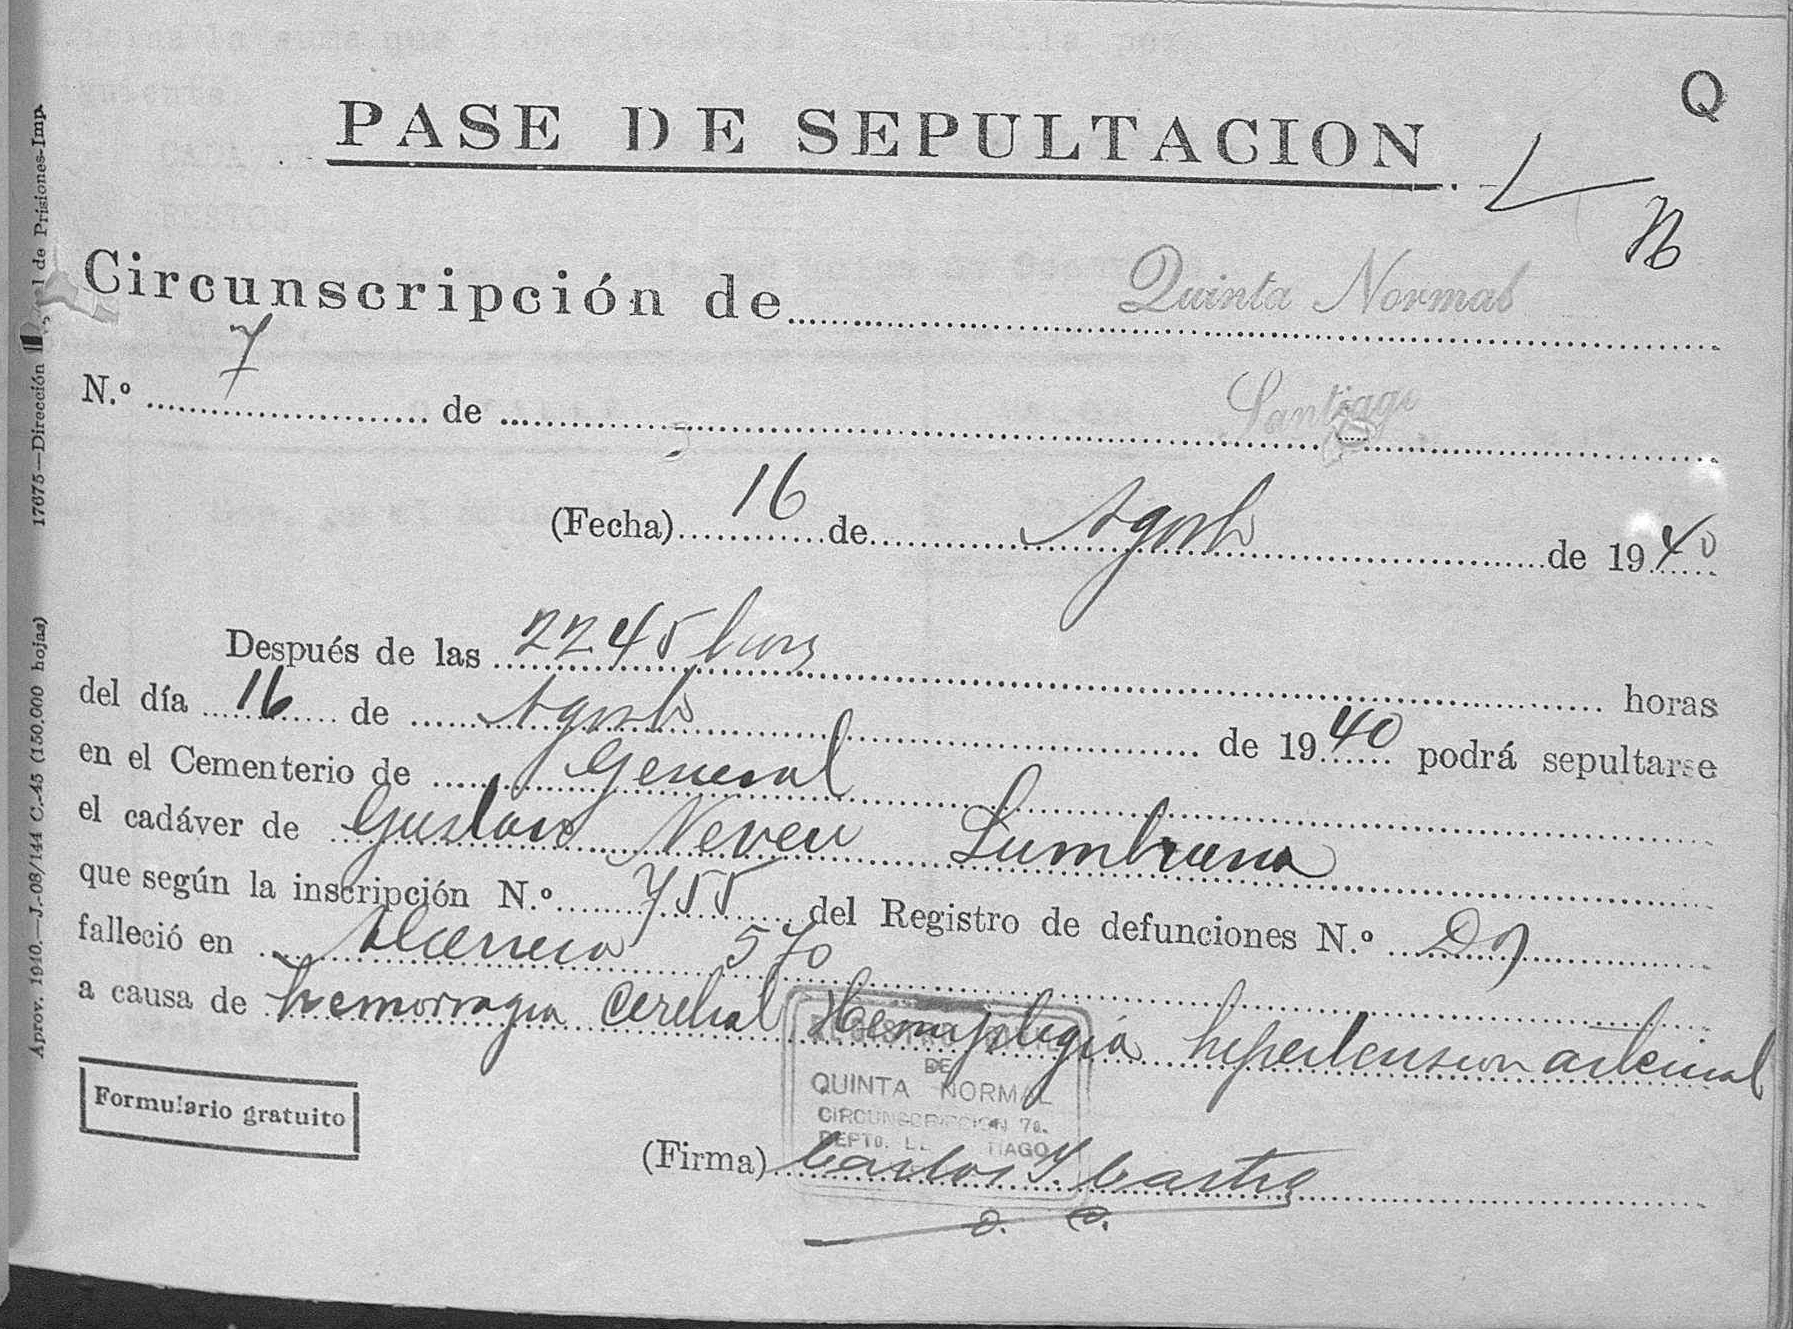 Q
PASE DE SEPULTACION
Circunscripción de Quinta Normal
N.º 7 de Santiago
(Fecha) 16 de Agosto de 1940
Después de las 2245 horas horas
del día 16 de Agosto de 1940 podrá sepultarse
en el Cementerio de General
el cadáver de Gustavo Neveu
que según la inscripción N.º 755 del Registro de defunciones N.º
falleció en 570
a causa de hemorragia cerebral Hemiplegia hipertension arterial
Formulario gratuito
REGISTRO CIVIL
DE
QUINTA NORMAL
CIRCUNSCRIPCION 7a.
DEPTO. TIAGO
(Firma) Carlos Y. Castro
17675—Dirección de Prisiones-Imp.
Aprov. 1910.—J.-08/144 C.45 (150,000 hojas)